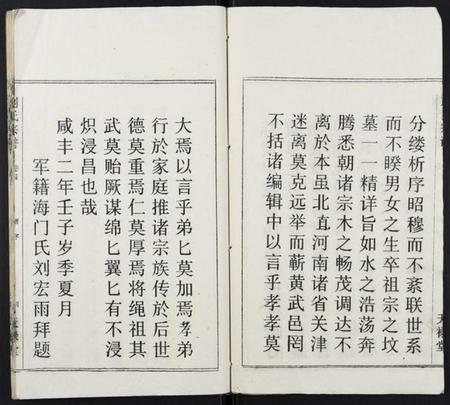 分缕析序昭穆而不紊联世系
而不暌男女之生卒祖宗之坟
墓一一精详旨如水之浩荡奔
腾悉朝诸宗木之畅茂调达不
离於本虽北直河南诸省关津
迷离莫克远举而蕲黄武邑罔
不括诸编辑中以言乎孝孝莫
天禄堂
大焉以言乎弟匕莫加焉孝弟
行於家庭推诸宗族传於后世
德莫重焉仁莫厚焉将绳祖其
武莫贻厥谋绵匕翼匕有不浸
炽浸昌也哉
咸丰二年壬子岁季夏月
军籍海门氏刘宏雨拜题